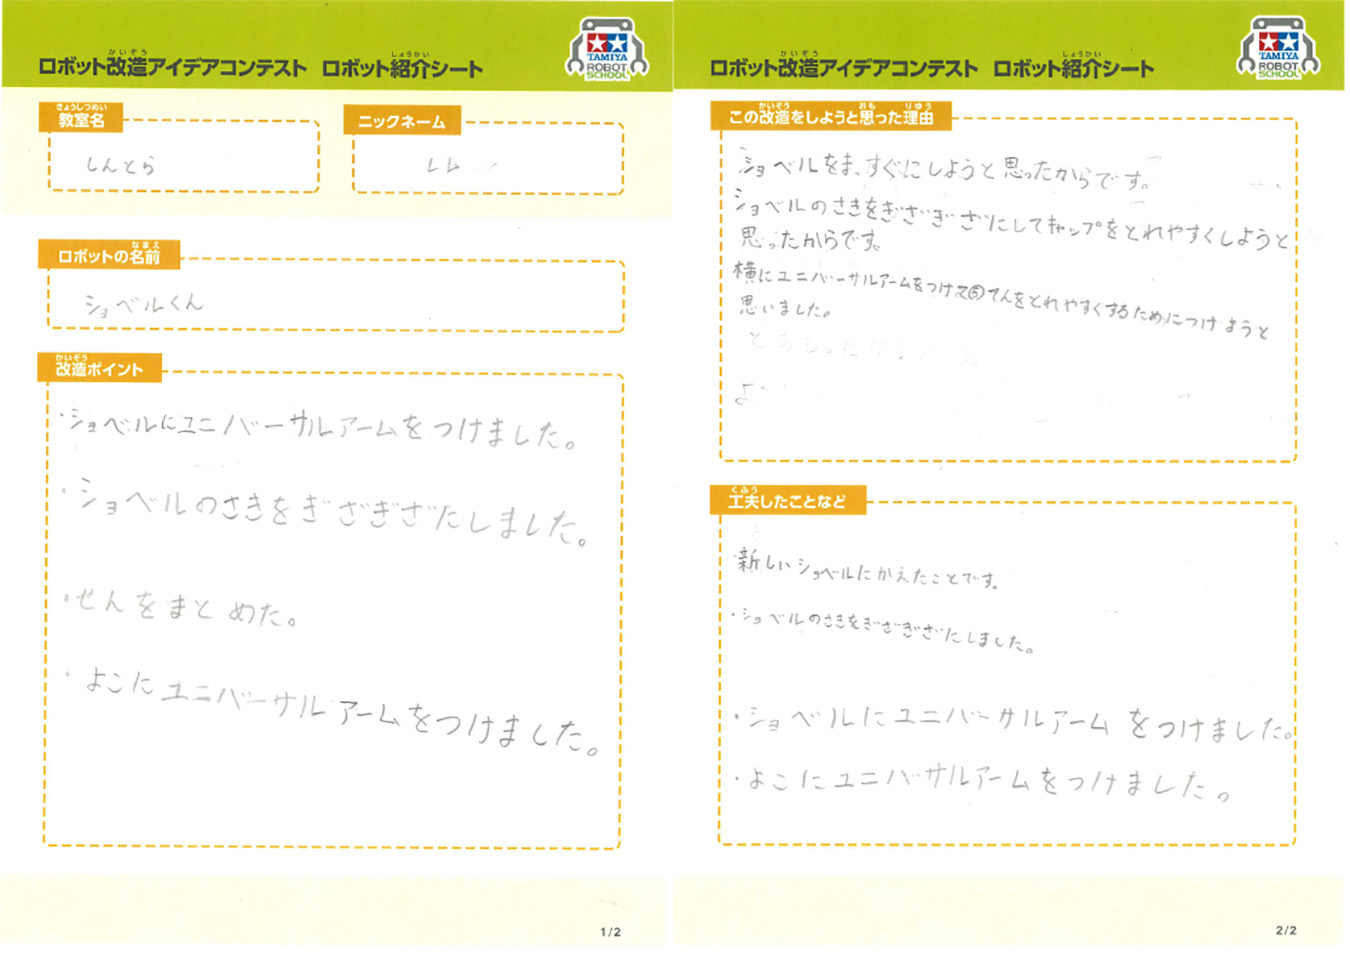 かいぞう しょうかい
ロボット改造アイデアコンテスト ロボット紹介シート
TAMIYA
ROBOT
SCHOOL
きょうしつめい
教室名
しんとら
ニックネーム
レレ
なまえ
ロボットの名前
ショベルくん
かいぞう
改造ポイント
・ショベルにユニバーサルアームをつけました。
・ショベルのさきをぎざぎざにしました。
・せんをまとめた。
・よこにユニバーサルアームをつけました。
1/2
かいぞう しょうかい
ロボット改造アイデアコンテスト ロボット紹介シート
TAMIYA
ROBOT
SCHOOL
かいぞう おも りゆう
この改造をしようと思った理由
ショベルをまっすぐにしようと思ったからです。
ショベルのさきをぎざぎざにしてキャップをとれやすくしようと
思ったからです。
横にユニバーサルアームをつけて⑤てんをとれやすくするためにつけようと
思いました。
くふう
工夫したことなど
・新しいショベルにかえたことです。
・ショベルのさきをぎざぎざにしました。
・ショベルにユニバーサルアームをつけました。
・よこにユニバーサルアームをつけました。
2/2